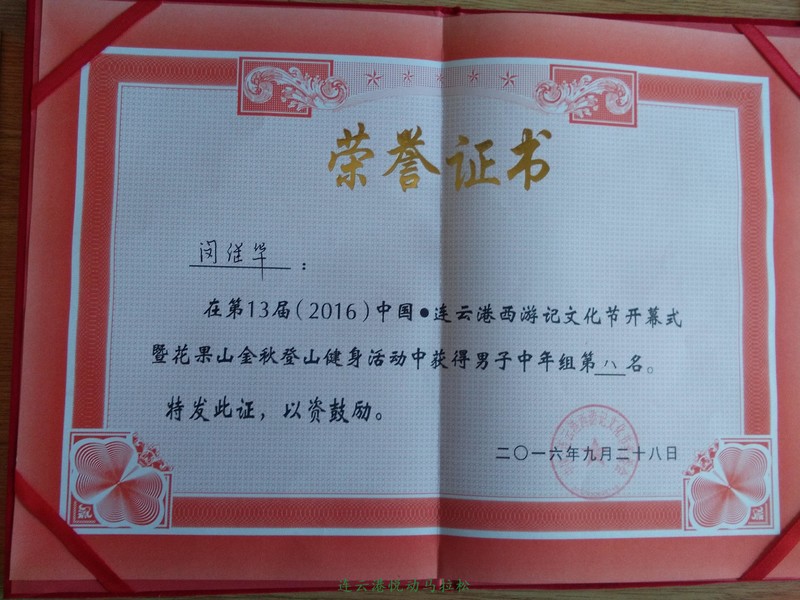 荣誉证书
闵继华：
在第13届（2016）中国•连云港西游记文化节开幕式
暨花果山金秋登山健身活动中获得男子中年组第八名。
特发此证，以资鼓励。
二〇一六年九月二十八日
连云港悦动马拉松